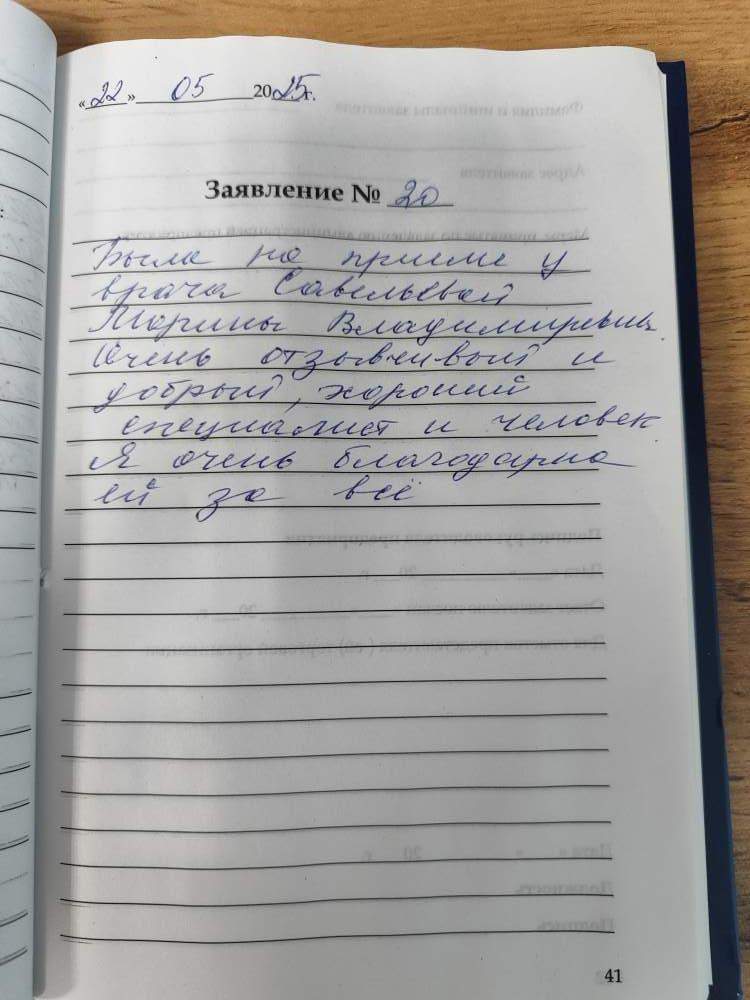 «22» 05 2025г.
Заявление № 20
Была на приеме у
врача Савельевой
Марины Владимировны.
Очень отзывчивый и
добрый, хороший
специалист и человек
Я очень благодарна
ей за всё
41